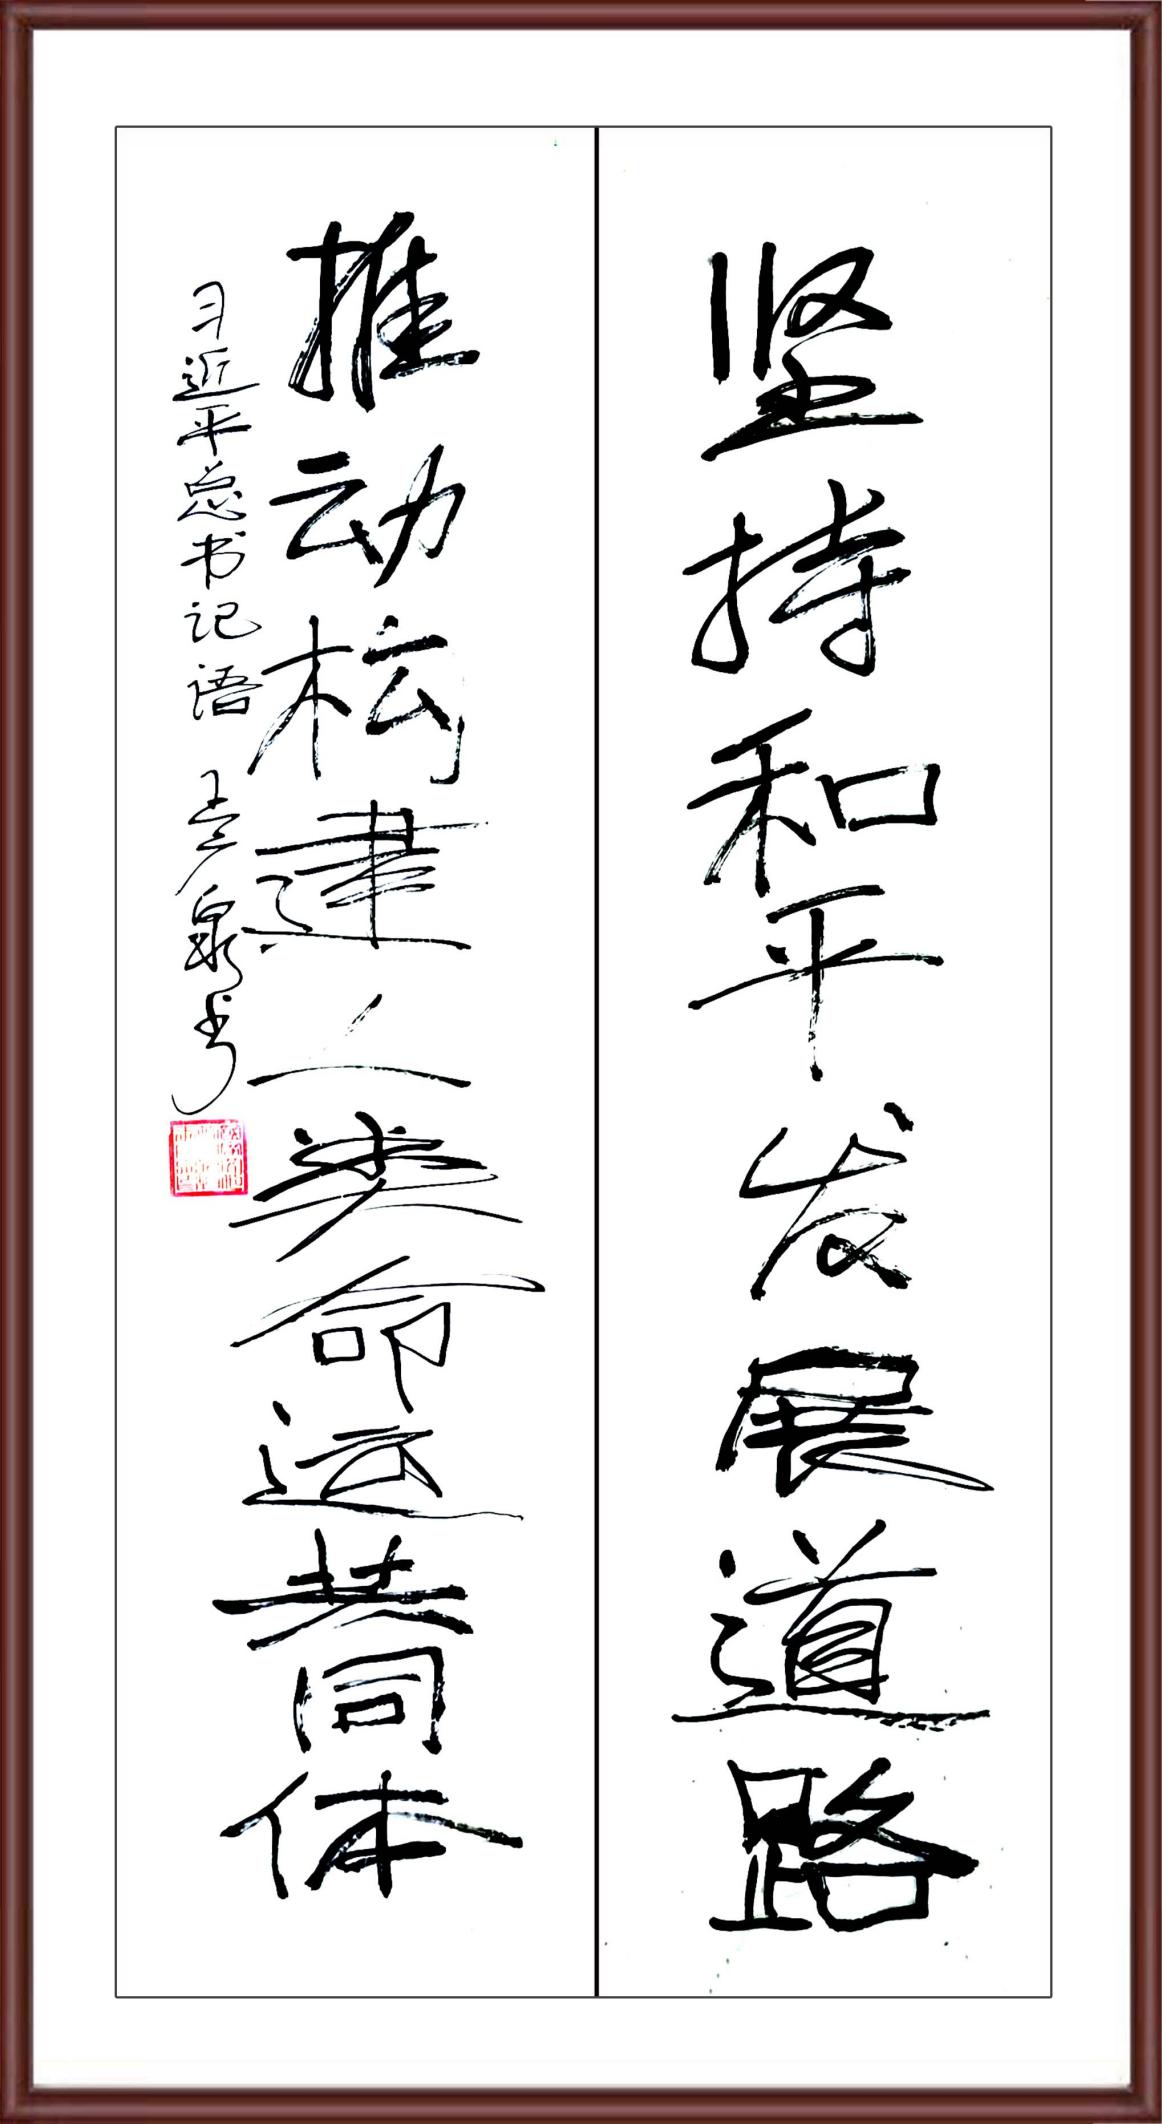 坚持和平发展道路
推动构建人类命运共同体
习近平总书记语 泉书